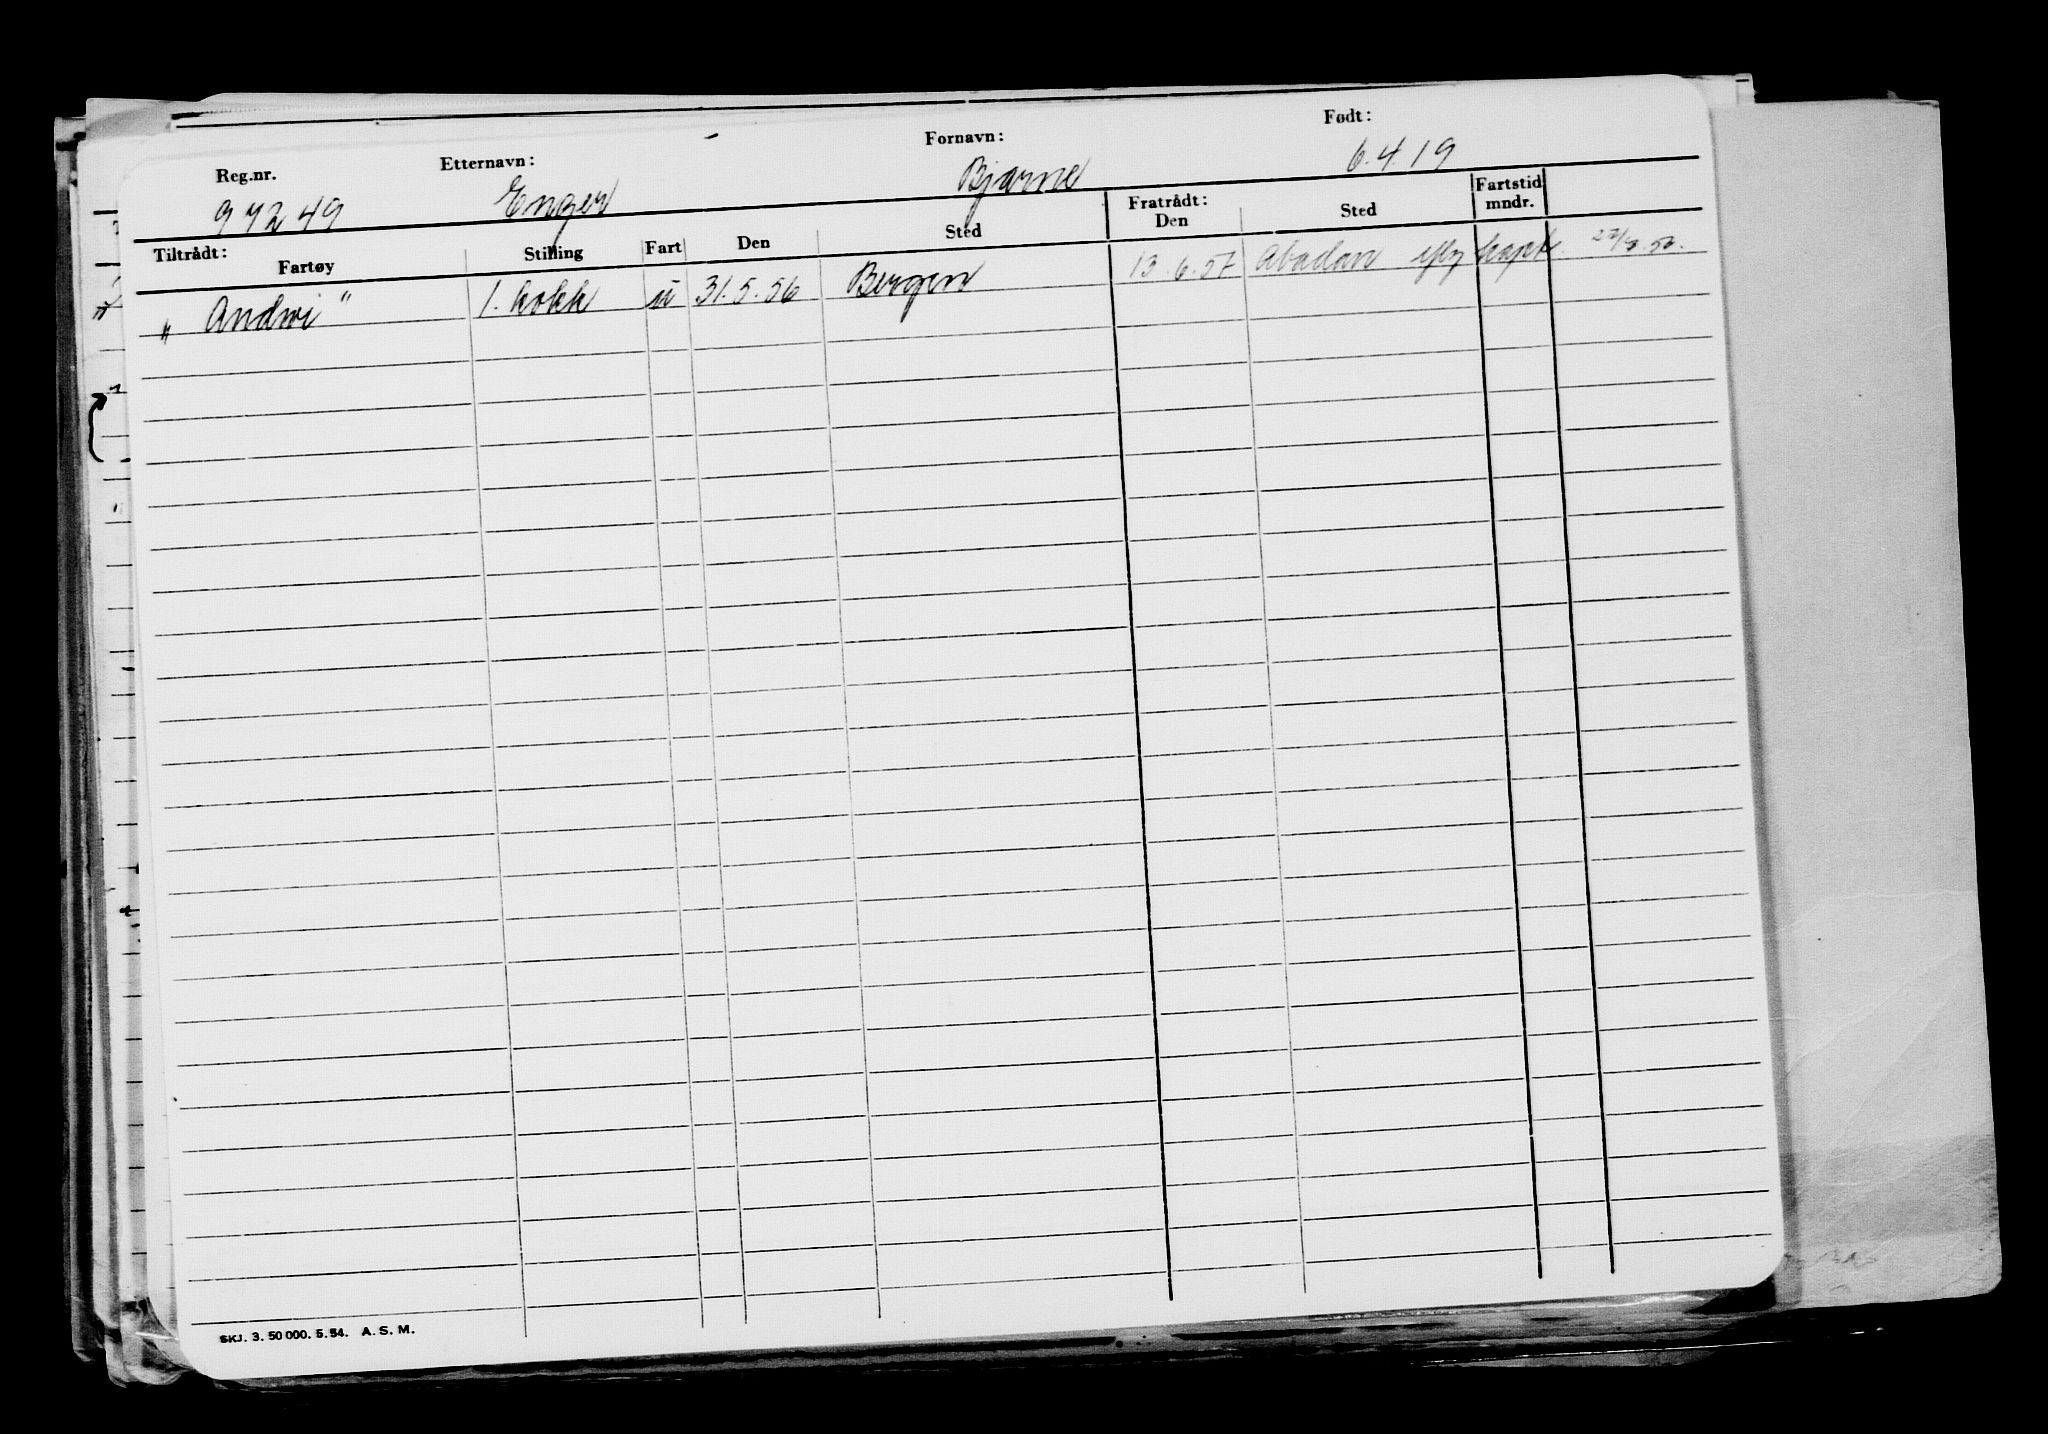 Reg.nr. Etternavn: Fornavn: Født:
97249 Enger Bjarne 6.4.19
Tiltrådt: Fartøy Stilling Fart Den Sted Fratrådt: Den Sted Fartstid mndr.
„ Andwi " 1. kokk u 31.5.56 Bergen 13.6.57 Abadan iflg kapt.
SKJ. 3. 50 000. 5.54. A. S. M.